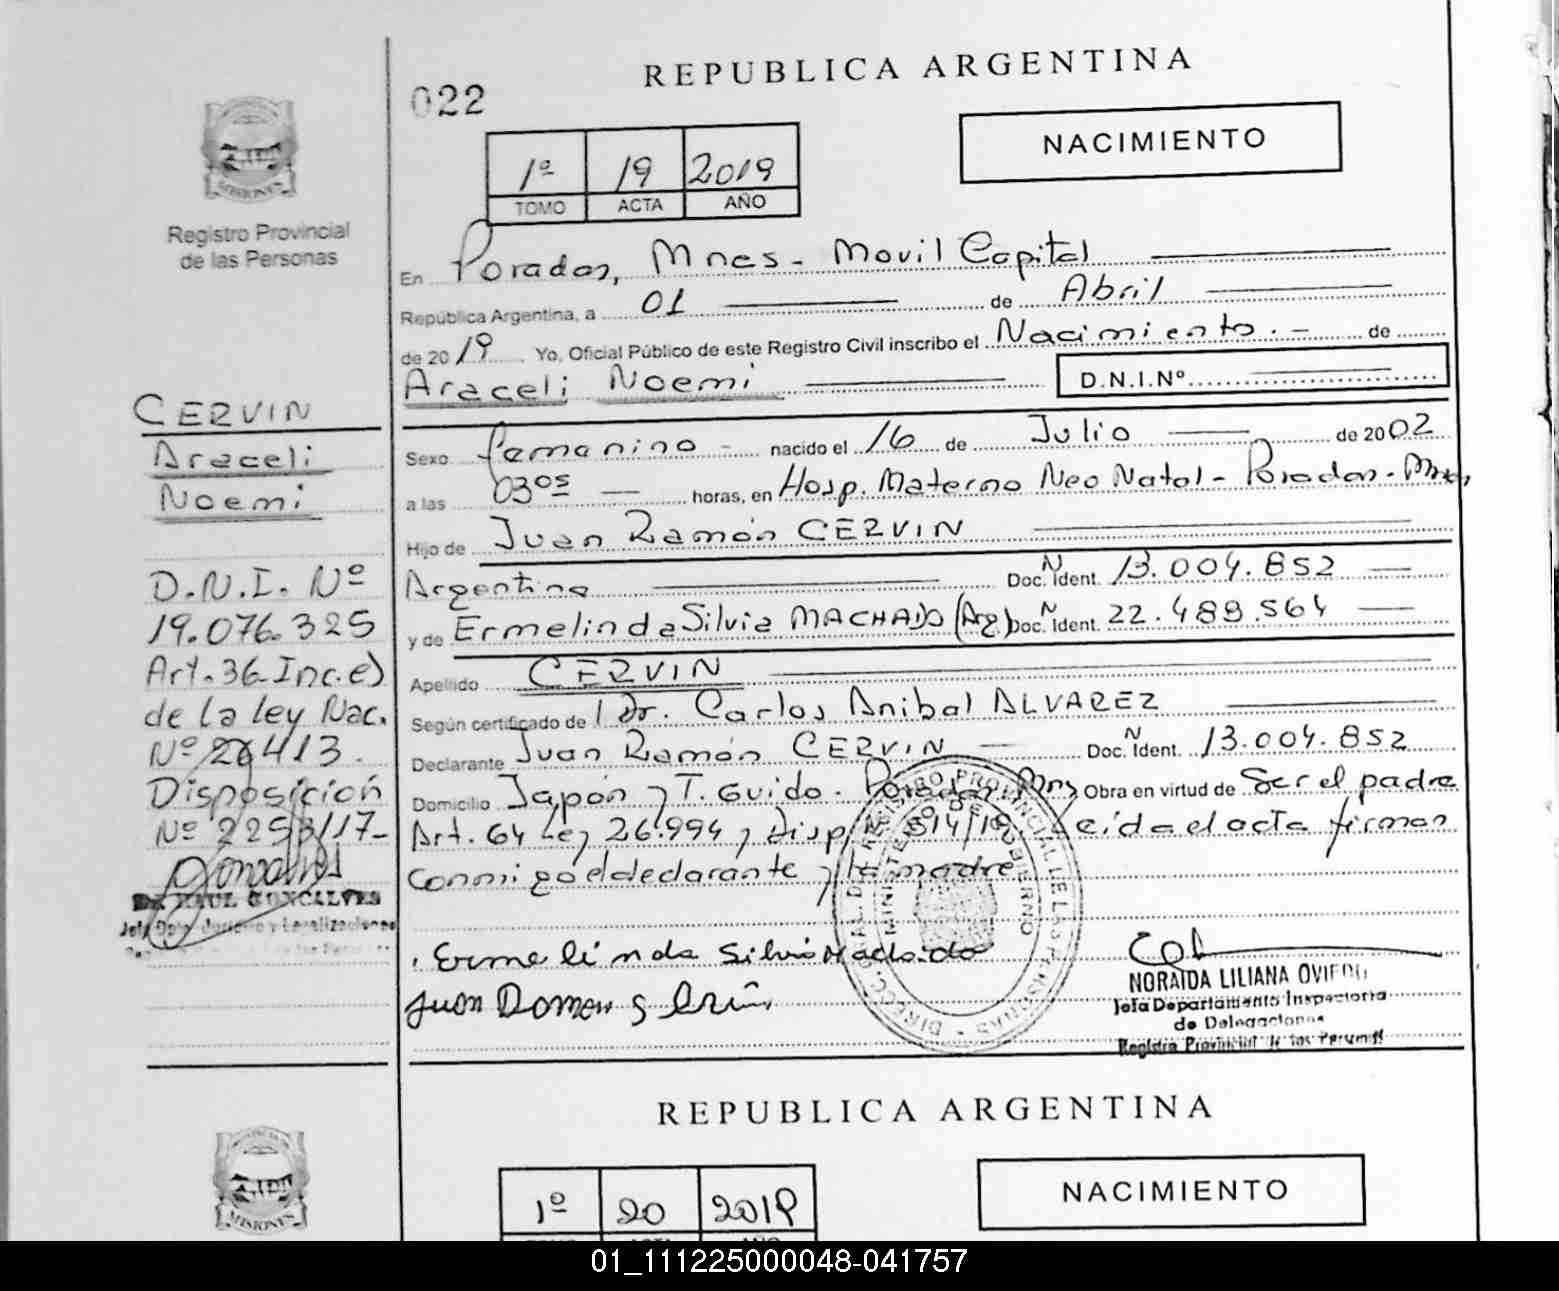 REPUBLICA ARGENTINA
022
NACIMIENTO
1º 19 2019
TOMO ACTA AÑO
MISIONES
Registro Provincial
de las Personas
En Posadas, Mnes - Movil Capital
República Argentina, a 01 de Abril
de 2019 Yo, Oficial Público de este Registro Civil inscribo el Nacimiento. - de
Araceli Noemi D.N.I.Nº
CERVIN
Araceli
Noemi
Sexo femenino - nacido el 16 de Julio de 2002
a las 03 05 horas, en Hosp. Materno Neo Natal - Posadas - Mnes,
Hijo de Juan Ramón CERVIN
Argentina Doc. N Ident. 13.004.852
y de Ermelinda Silvia MACHADO (Arg.) Doc. N Ident. 22.488.564
Apellido CERVIN
Según certificado de Dr. Carlos Anibal ALVAREZ
Declarante Juan Ramón CERVIN Doc. N Ident. 13.004.852
Domicilio Japón y T. Guido - Posadas, Mns Obra en virtud de Ser el padre
Art. 64 Ley 26.994 y Disp. Leida el acta firman
conmigo el declarante y la madre
D.N.I. Nº
19.076.325
Art. 36 Inc. e)
de la ley Nac.
Nº 26413.
Disposición
Nº 2253/17-
RAUL GONCALVES
Ermelinda Silvia Machado
Juan Ramon Cervin
NORAIDA LILIANA OVIEDO
Jefa Departamento Inspectoria
de Delegaciones
Registro Provincial de las Personas
REPUBLICA ARGENTINA
NACIMIENTO
1º 20 2019
MISIONES
01_111225000048-041757